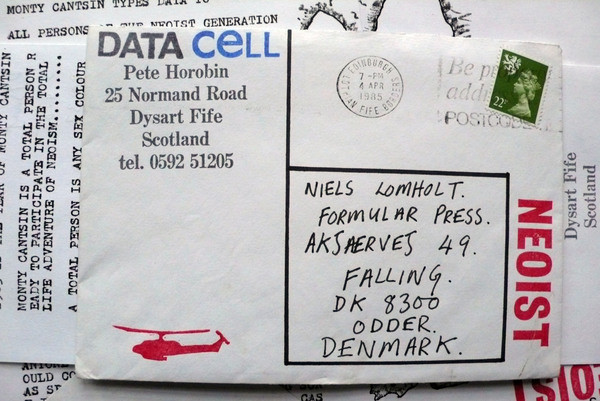 MONTY CANTSIN TYPES DATA TO
ALL PERSONS OF THE NEOIST GENERATION
MONTY CANTSIN IS A TOTAL PERSON R
EADY TO PARTICIPATE IN THE TOTAL
LIFE ADVENTURE OF NEOISM.........
A TOTAL PERSON IS ANY SEX COLOUR
DATA CELL
Pete Horobin
25 Normand Road
Dysart Fife
Scotland
tel. 0592 51205
EDINBURGH
7-PM
4 APR
1985
FIFE BORDERS
Be
POSTCODE
22P
NIELS LOMHOLT.
FORMULAR PRESS.
AKSAERVEJ 49.
FALLING.
DK 8300
ODDER.
DENMARK.
NEOIST
Dysart Fife
Scotland
OULD
GAS